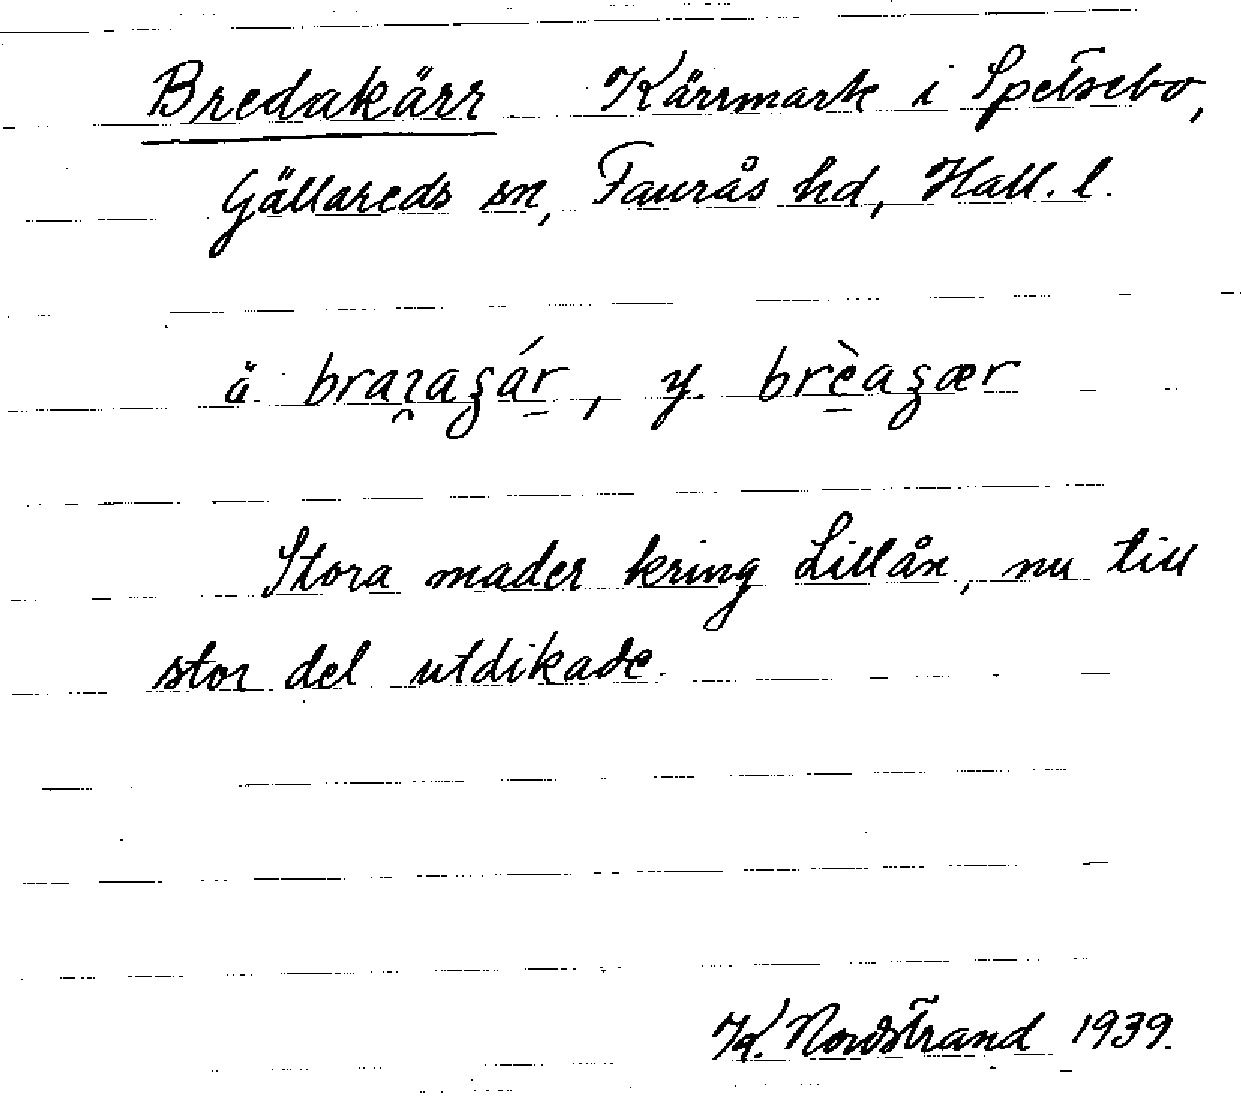 Bredakärr Kärrmark i Spetsebo,
Gällareds sn, Faurås hd, Hall. l.
ä. braɿaʒár, y. brèaʒær
Stora mader kring Lillån, nu till
stor del utdikade.
K. Nordstrand 1939.